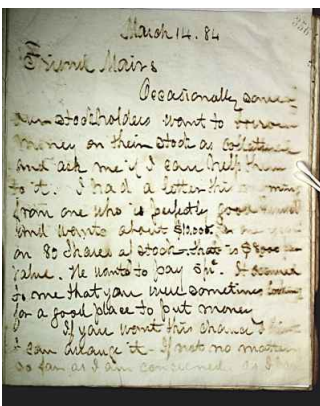 March 14. 84
Friend Mairs
Occasionally some
our stockholders want to borrow
money on their stock as collateral
and ask me if I can help them
to it. I had a letter this morning
from one who is perfectly good
and wants about $10,000.
on 80 shares of stock - that is $8000
value. He wants to pay It seemed
to me that you were sometimes looking
for a good place to put money
If you want this chance I
I can arrange it - If not no matter
so far as I am concerned. as I